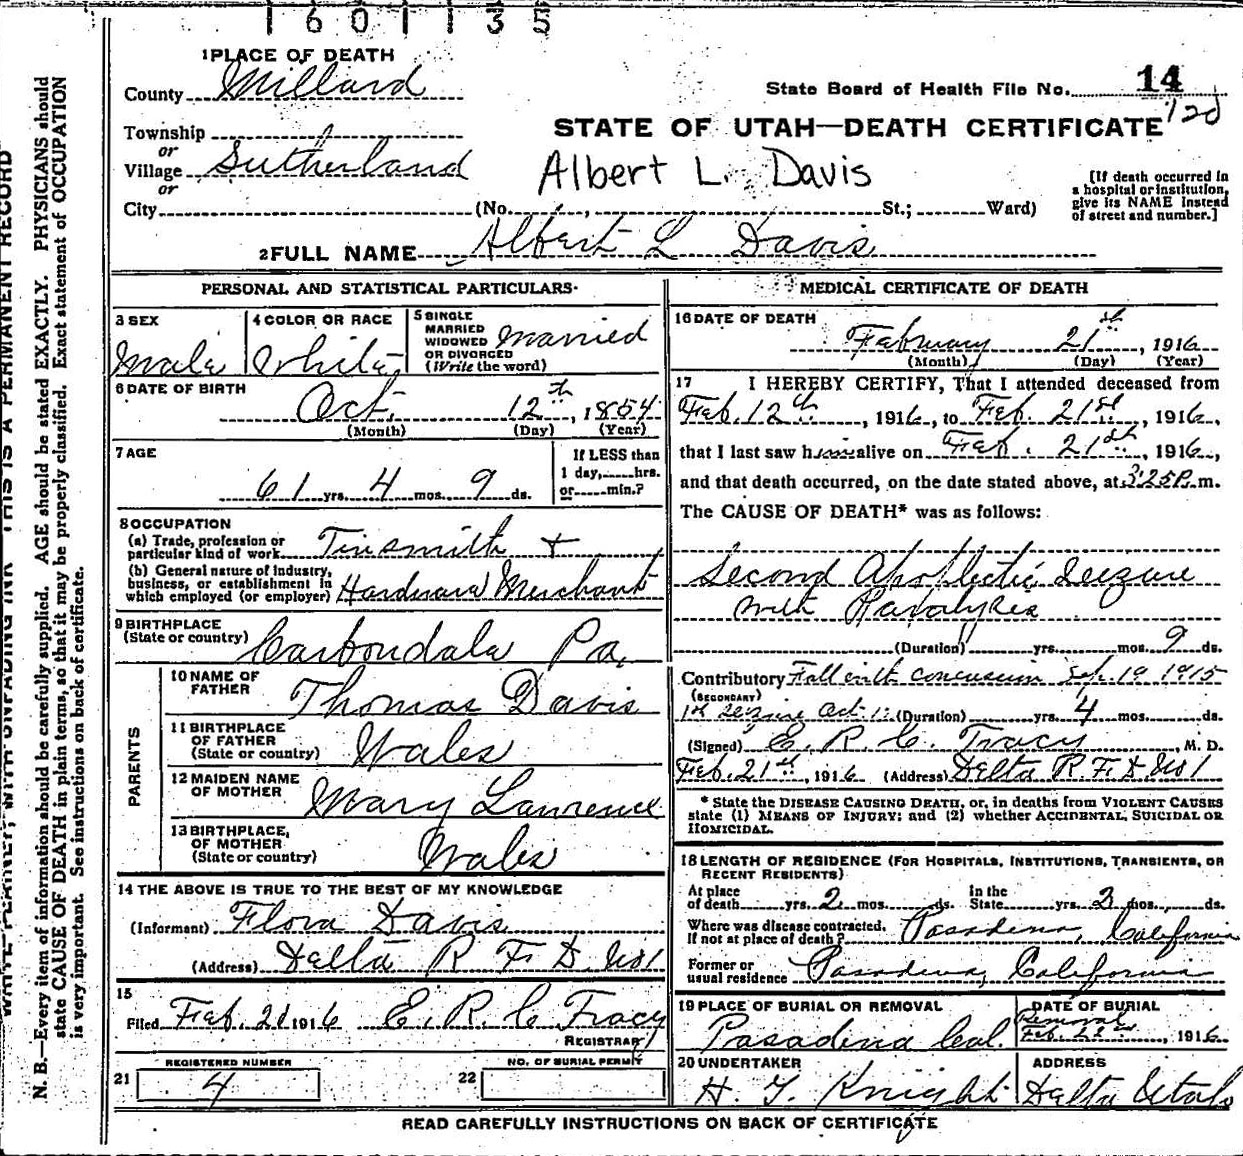 1601135
1 PLACE OF DEATH
County Millard
State Board of Health File No. 14
Township
or
STATE OF UTAH—DEATH CERTIFICATE
Village Sutherland
or
Albert L. Davis
[If death occurred in
a hospital or institution,
give its NAME instead
of street and number.]
City (No. , St.; Ward)
2 FULL NAME Albert L Davis
PERSONAL AND STATISTICAL PARTICULARS
3 SEX
Male
4 COLOR OR RACE
White
5 SINGLE
MARRIED
WIDOWED
OR DIVORCED
(Write the word)
Married
6 DATE OF BIRTH
Oct. 12th, 1854
(Month) (Day) (Year)
7 AGE
61 yrs. 4 mos. 9 ds.
If LESS than
1 day, hrs.
or min.?
8 OCCUPATION
(a) Trade, profession or
particular kind of work Tinsmith +
(b) General nature of industry,
business, or establishment in
which employed (or employer) Hardware Merchant
9 BIRTHPLACE
(State or country) Carbondale Pa.
PARENTS
10 NAME OF
FATHER Thomas Davis
11 BIRTHPLACE
OF FATHER
(State or country) Wales
12 MAIDEN NAME
OF MOTHER Mary Lawrence
13 BIRTHPLACE
OF MOTHER
(State or country) Wales
14 THE ABOVE IS TRUE TO THE BEST OF MY KNOWLEDGE
(Informant) Flora Davis
(Address) Delta R. F. D. No 1
15
Filed Feb. 21 1916 E. R. C. Tracy
REGISTRAR
REGISTERED NUMBER
21 4
NO. OF BURIAL PERMIT
22
MEDICAL CERTIFICATE OF DEATH
16 DATE OF DEATH
February 21st, 1916
(Month) (Day) (Year)
17 I HEREBY CERTIFY, That I attended deceased from
Feb. 12th, 1916, to Feb. 21st, 1916,
that I last saw him alive on Feb. 21st, 1916,
and that death occurred, on the date stated above, at 3:25 P. m.
The CAUSE OF DEATH* was as follows:
Second Apoplectic Seizure
with Paralysis
(Duration) yrs. mos. 9 ds.
Contributory Fall with concussion Sep. 19 1915
(SECONDARY)
1st Seizure Oct. (Duration) yrs. 4 mos. ds.
(Signed) E. R. C. Tracy, M. D.
Feb. 21st, 1916 (Address) Delta R. F. D. No 1
* State the DISEASE CAUSING DEATH, or, in deaths from VIOLENT CAUSES
state (1) MEANS OF INJURY; and (2) whether ACCIDENTAL, SUICIDAL OR
HOMICIDAL.
18 LENGTH OF RESIDENCE (FOR HOSPITALS, INSTITUTIONS, TRANSIENTS, OR
RECENT RESIDENTS)
At place
of death yrs. 2 mos. ds.
In the
State yrs. 2 mos. ds.
Where was disease contracted.
If not at place of death? Pasadena, California
Former or
usual residence Pasadena, California
19 PLACE OF BURIAL OR REMOVAL
Pasadina Cal.
DATE OF BURIAL
Removal
Feb. 22nd, 1916
20 UNDERTAKER
H. F. Knight
ADDRESS
Delta Utah
READ CAREFULLY INSTRUCTIONS ON BACK OF CERTIFICATE
THIS IS A PERMANENT RECORD
N. B.—Every item of information should be carefully supplied. AGE should be stated EXACTLY. PHYSICIANS should
state CAUSE OF DEATH in plain terms, so that it may be properly classified. Exact statement of OCCUPATION
is very important. See instructions on back of certificate.